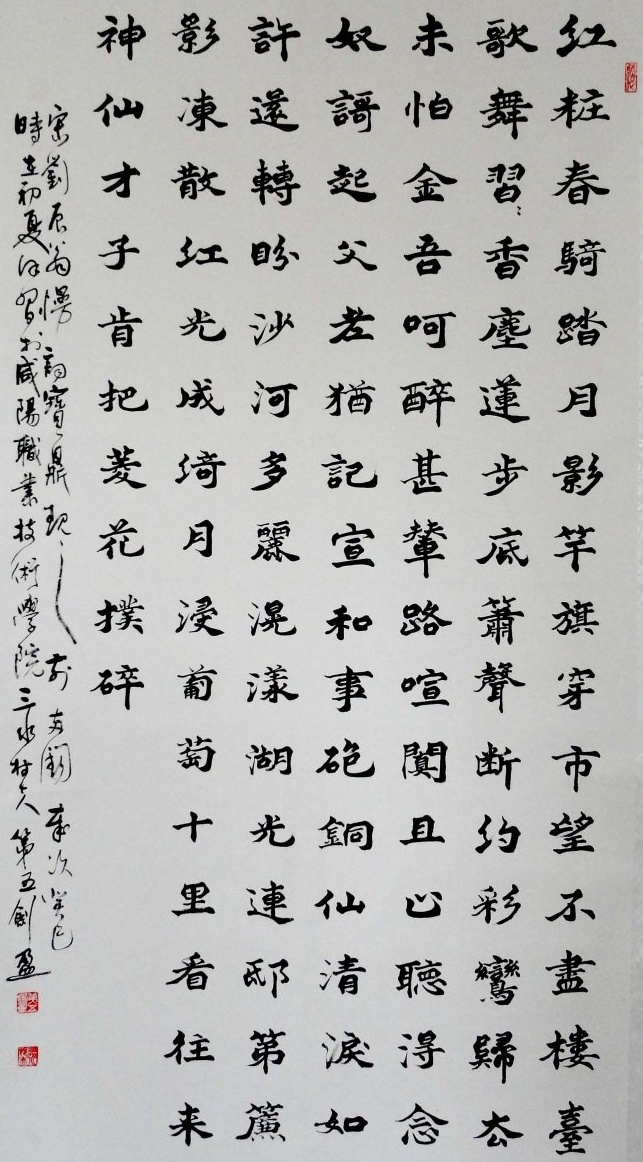 红粧春騎踏月影竿旗穿市望不盡樓臺
歌舞習〻香塵蓮步底簫聲断約彩鸞歸去
未怕金吾呵醉甚輦路喧闐且止聽得念
奴謌起父老猶記宣和事砲銅仙清淚如
許還轉盼沙河多麗滉漾湖光連邸第簾
影凍散红光成绮月浸葡萄十里看往来
神仙才子肯把菱花撲碎
宋劉辰翁慢詞寶鼎現之前兩闋歲次癸巳
時在初夏習於咸陽職業技術學院三水村夫第五劍盈